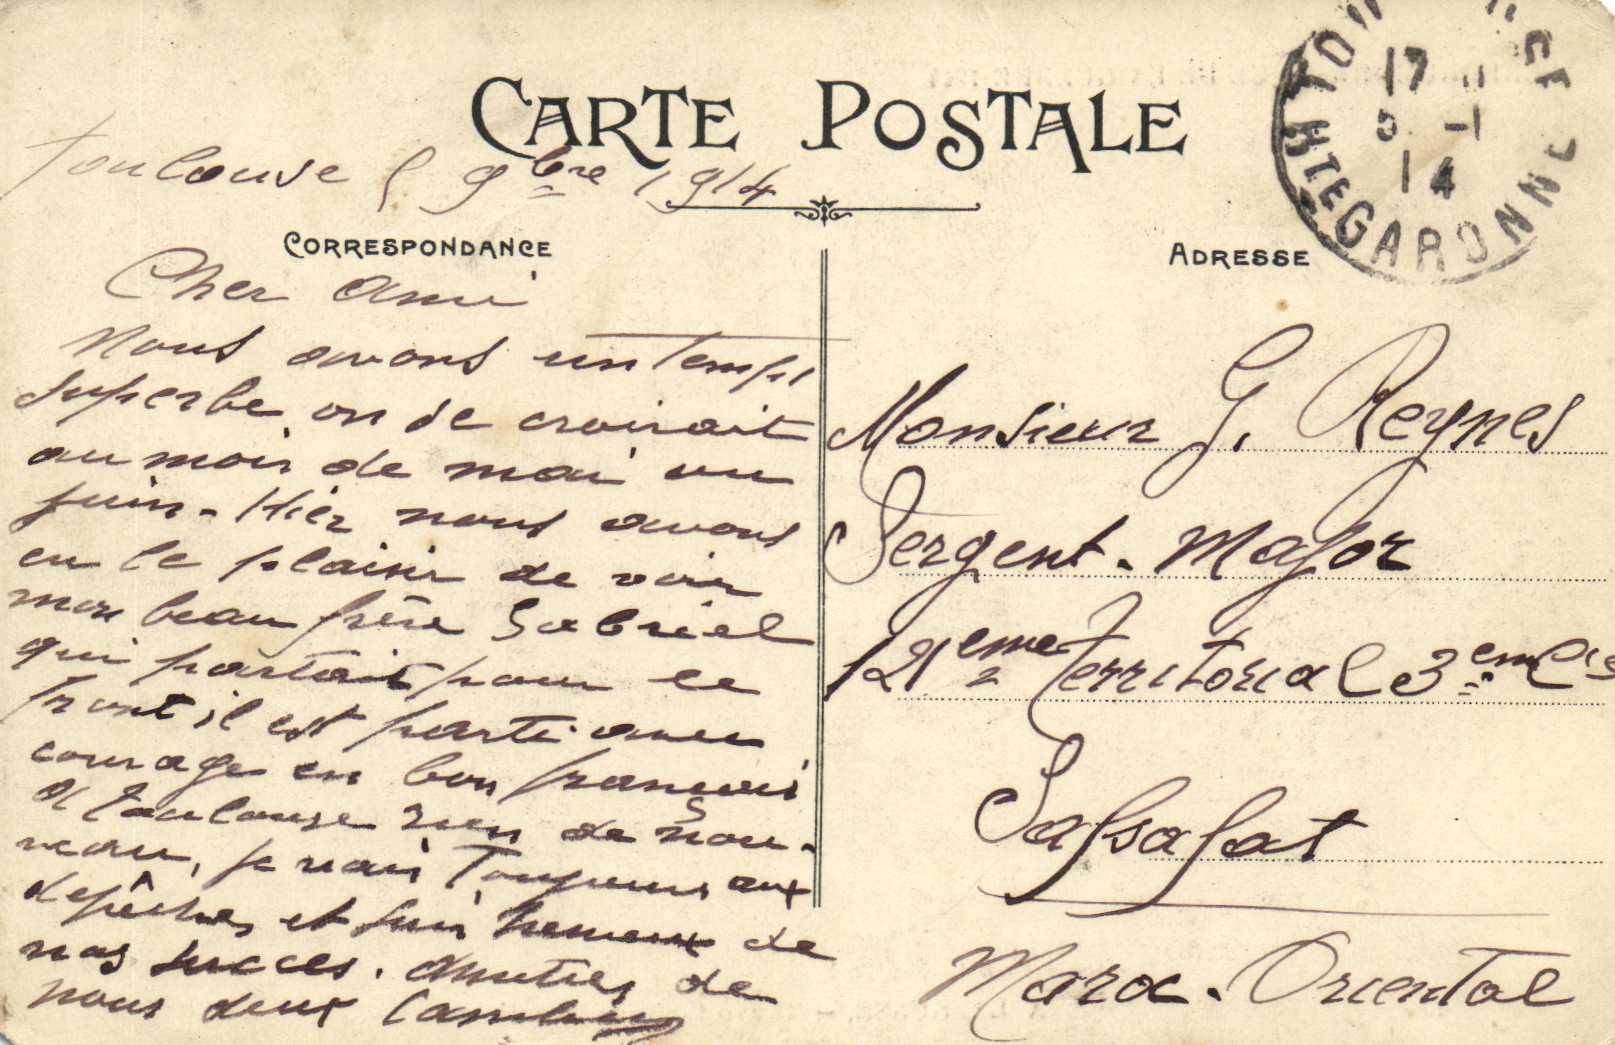 CARTE POSTALE
Toulouse 5 9bre 1914
CORRESPONDANCE
Cher ami
Nous avons un temps
superbe on se croirait
au mois de mai ou
juin - Hier nous avons
eu le plaisir de voir
mon beau frère Gabriel
qui partait pour le
front il est parti avec
courage en bon francais
A Toulouse rien de nou-
veau, je vais Toujours aux
depêches et suis heureux de
nos succes. Amities de
nous deux
17 11
5 -1
14
HTE GARONNE
ADRESSE
Monsieur G. Reynes
Sergent-Major
121eme Territorial 3eme Cie
Safsafat
Maroc-Oriental